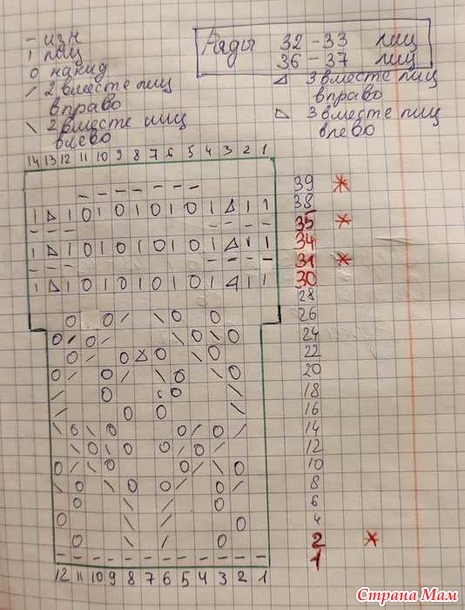 – изн
1 лиц
0 накид
/ 2 вместе лиц
вправо
\ 2 вместе лиц
влево
Ряды 32 – 33 лиц
36 – 37 лиц
3 вместе лиц
вправо
3 вместе лиц
влево
14 13 12 11 10 9 8 7 6 5 4 3 2 1
39 *
38
35 *
34
31 *
30
28
26
24
22
20
18
16
14
12
10
8
6
4
2 *
1
12 11 10 9 8 7 6 5 4 3 2 1
Страна Мам